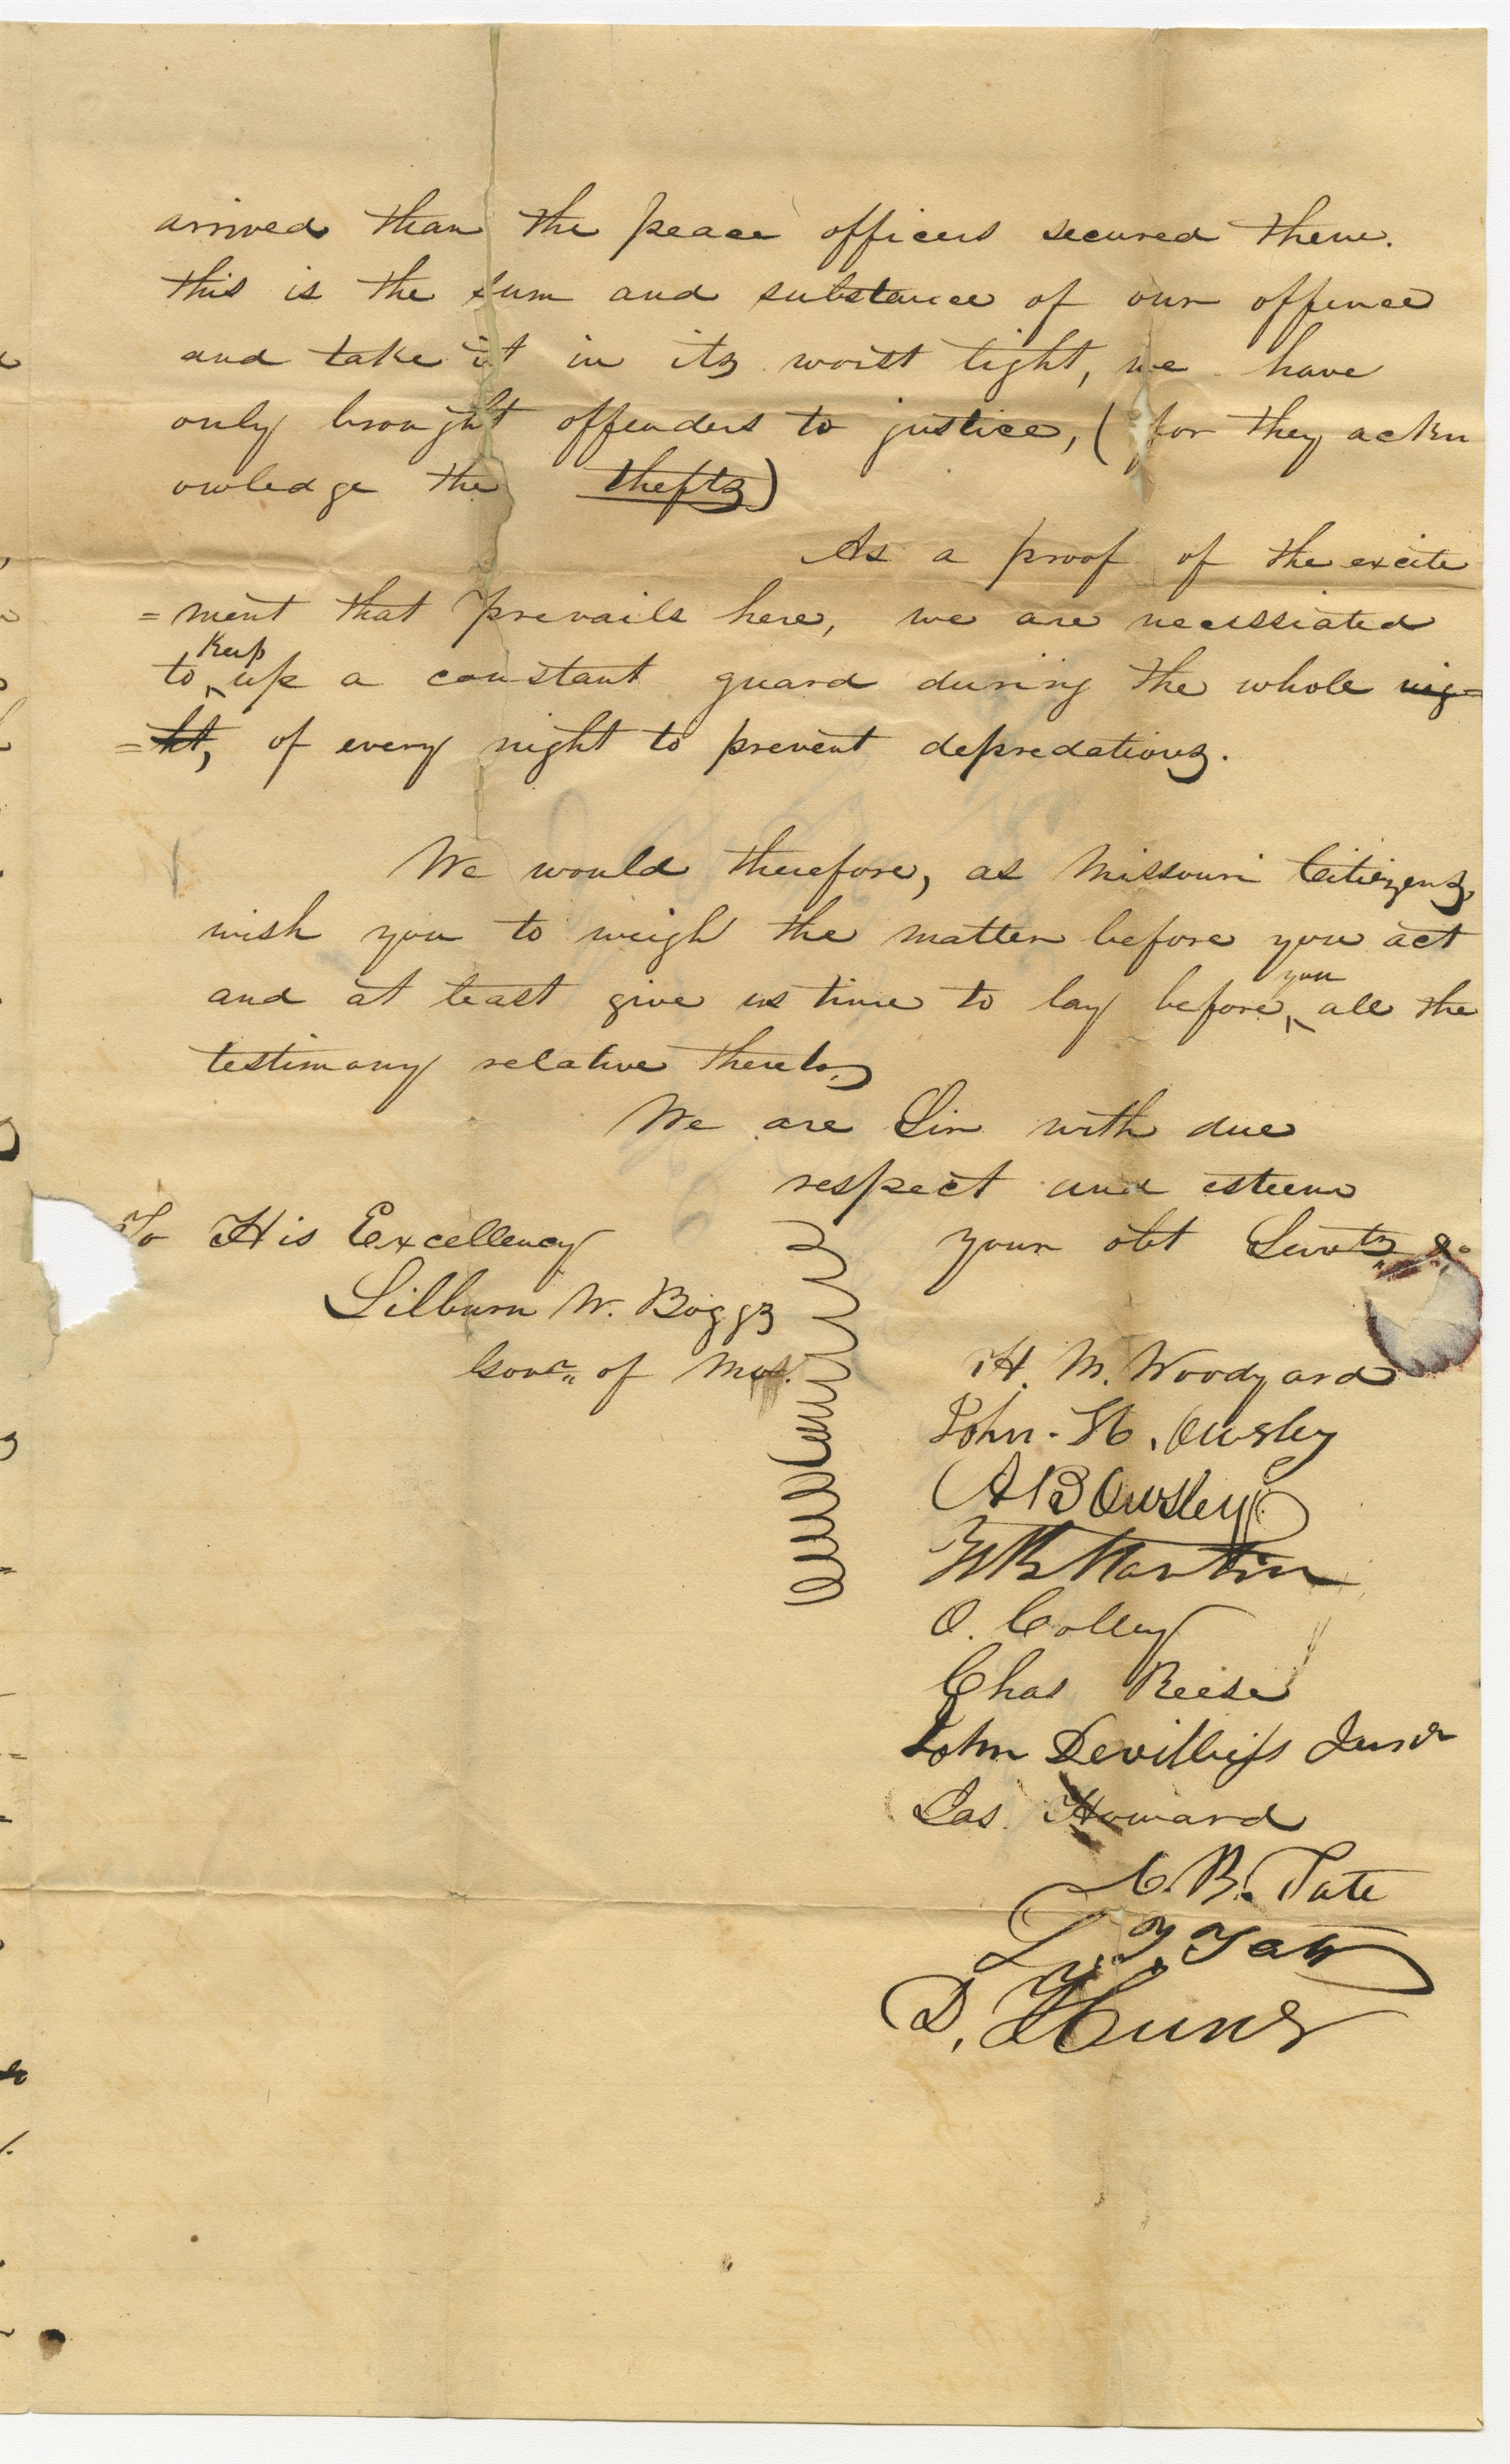 arrived than the peace officers secured them.
this is the sum and substance of our offence
and take it in its worst light, we have
only brought offenders to justice, (for they ackn
owledge the thefts)
As a proof of the excite
=ment that prevails here, we are necessiated
to keep up a constant guard during the whole nig=
=ht, of every night to prevent depredations.
We would therefore, as Missouri Citizens,
wish you to weigh the matter before you act
and at least give us time to lay before you all the
testimony relative thereto,
We are Sir with due
respect and esteem
your obt Servts &c
To His Excellency
Lilburn W. Boggs
Govr. of Mo.
H. M. Woodyard
John. H. Owsley
A B Owsley
Martin
O. Colley
Chas Reese
John Devilliess Junr
Jas Howard
C. B. Tate
D. Hunt